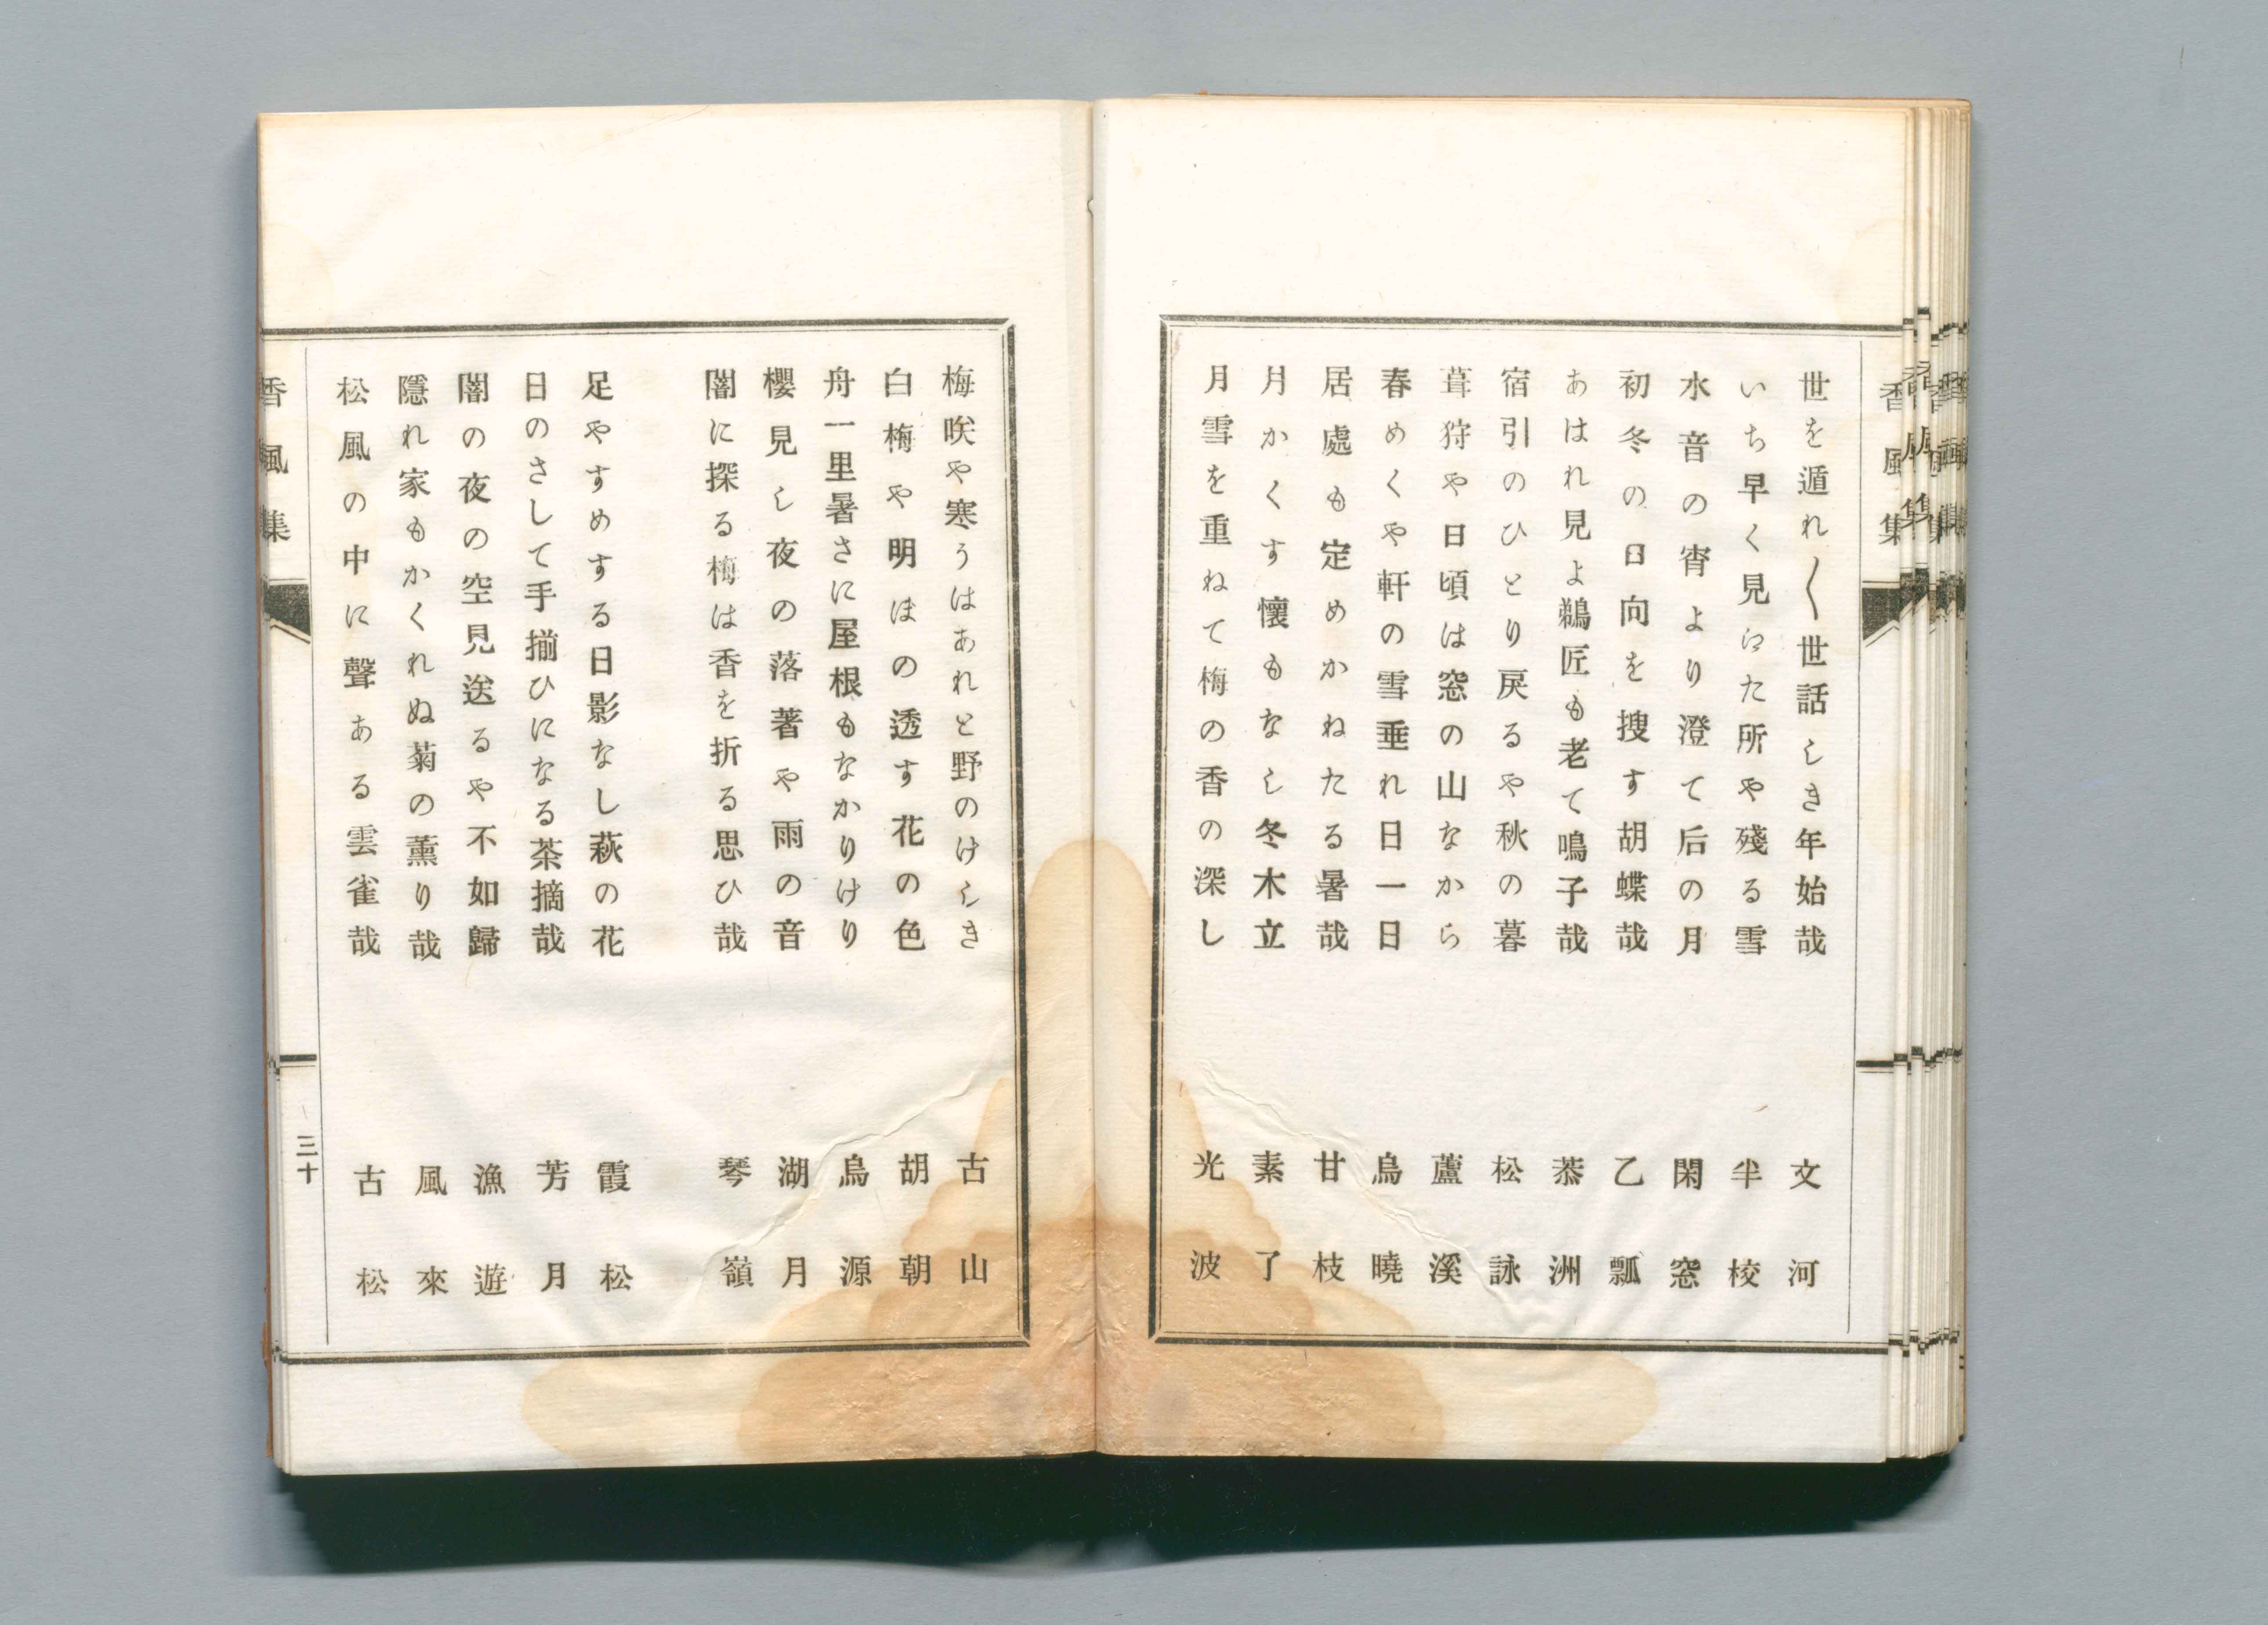 世を遁れ〱世話しき年始哉　文河
いち早く見にた所や殘る雪　半校
水音の宵より澄て后の月　閑窓
初冬の日向を捜す胡蝶哉　乙瓢
あはれ見よ鵜匠も老て鳴子哉　恭洲
宿引のひとり戻るや秋の暮　松詠
茸狩や日頃は窓の山なから　蘆溪
春めくや軒の雪垂れ日一日　烏曉
居處も定めかねたる暑哉　甘枝
月かくす懷もなし冬木立　素了
月雪を重ねて梅の香の深し　光波
梅咲や寒うはあれと野のけしき　古山
白梅や明ほの透す花の色　胡朝
舟一里暑さに屋根もなかりけり　烏源
櫻見し夜の落著や雨の音　湖月
闇に探る梅は香を折る思ひ哉　琴嶺
足やすめする日影なし萩の花　霞松
日のさして手揃ひになる茶摘哉　芳月
闇の夜の空見送るや不如歸　漁遊
隱れ家もかくれぬ菊の薫り哉　風來
松風の中に聲ある雲雀哉　古松
香風集
三十